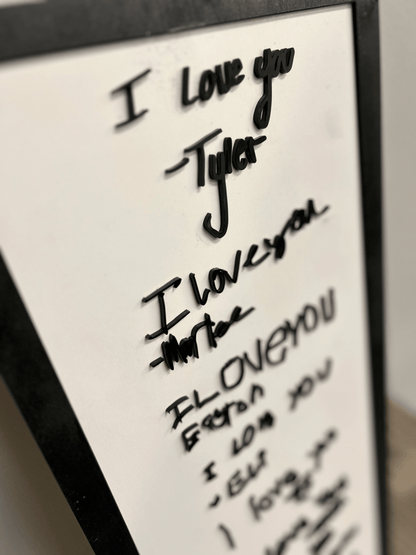 I Love you
-Tyler
I love you
I LOVEYOU
Easton
I LOVE YOU
- ELI
I love you